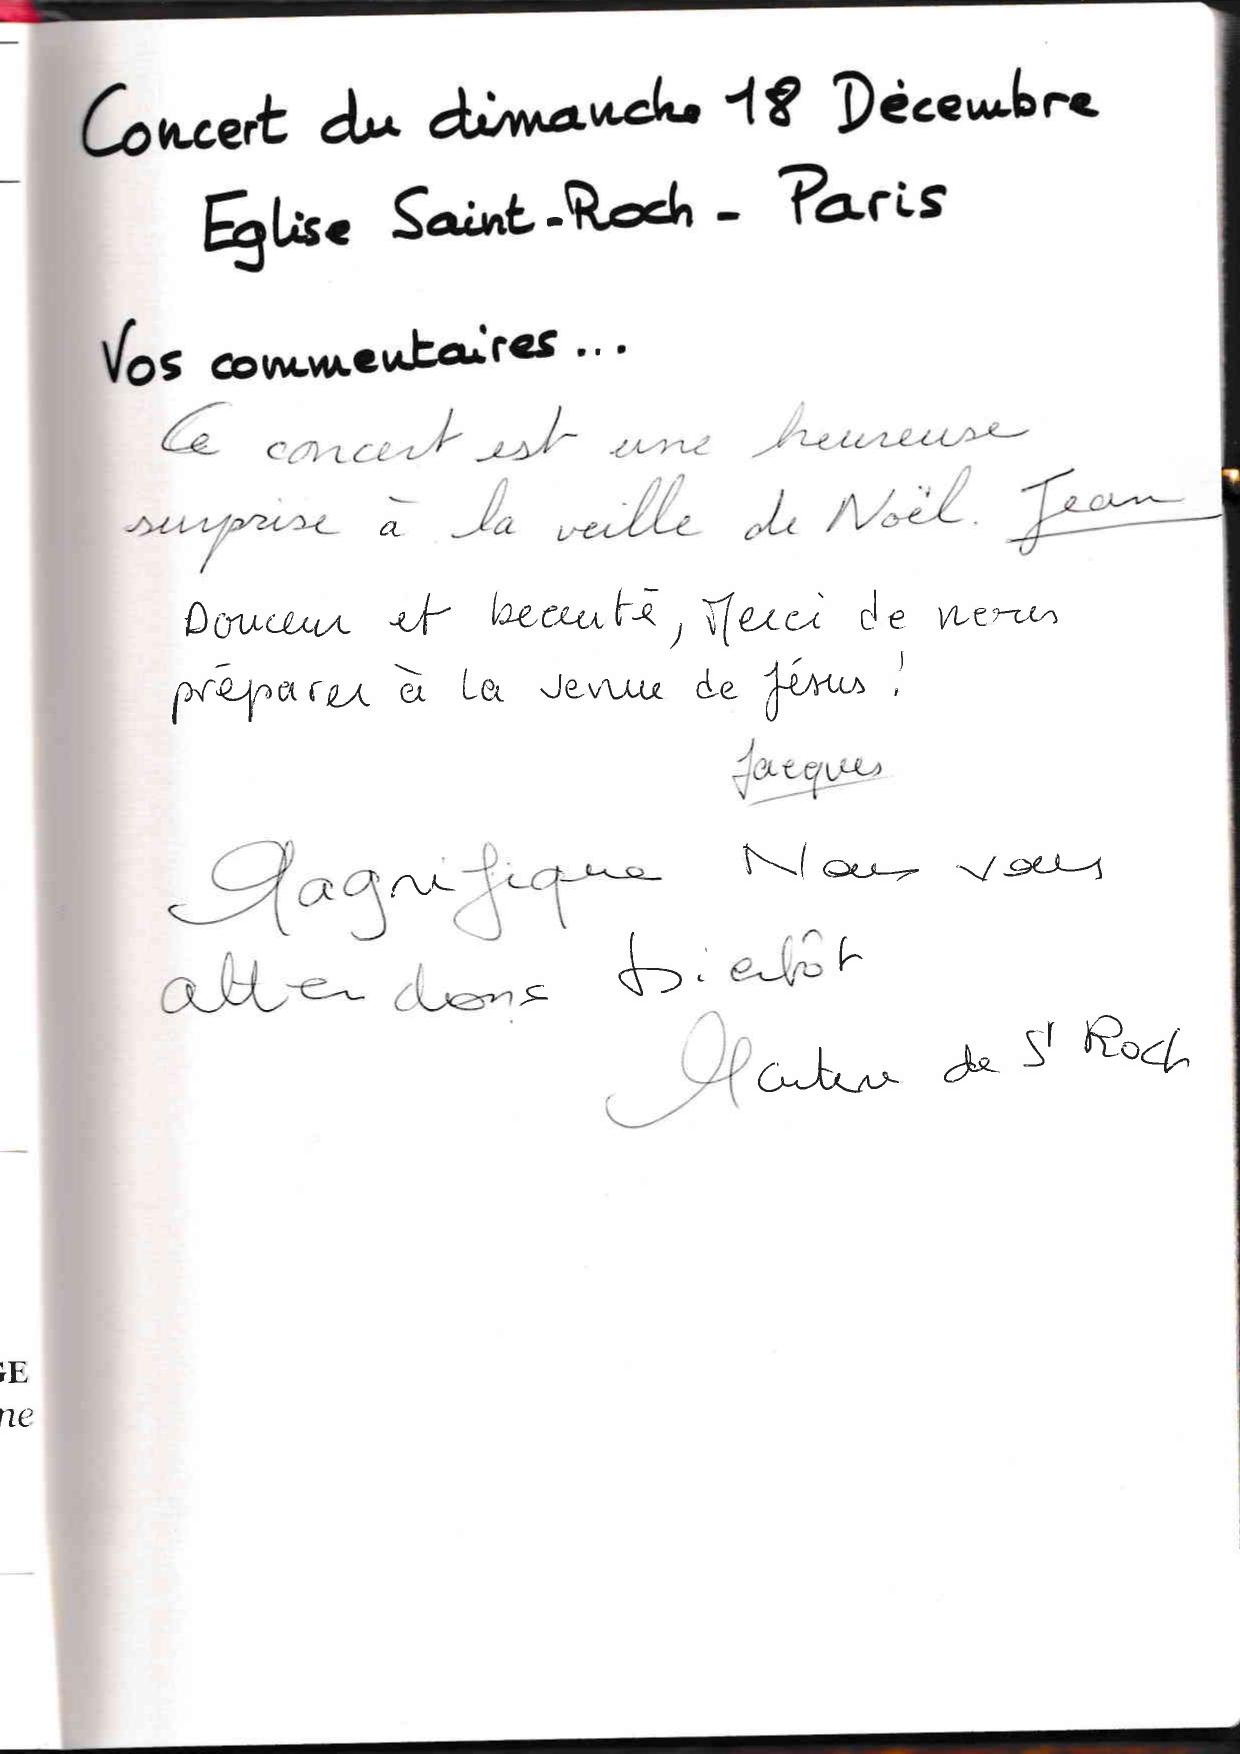 Concert du dimanche 18 Décembre
Eglise Saint-Roch - Paris
Vos commentaires...
Ce concert est une heureuse
surprise à la veille de Noël. Jean
Douceur et beauté, Merci de nous
préparer à la venue de Jésus !
Jacques
Magnifique Nous vous
attendons bientôt
de St Roch
GE
ne